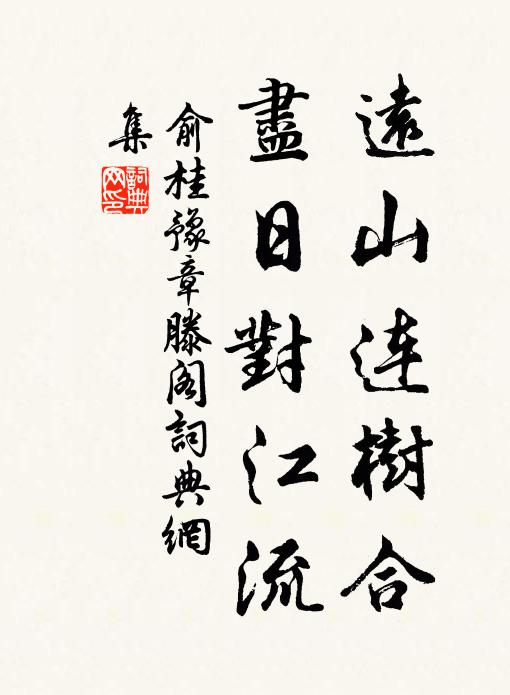 遠山連樹合
盡日對江流
俞桂豫章滕阁詞典網
集
詞典网印